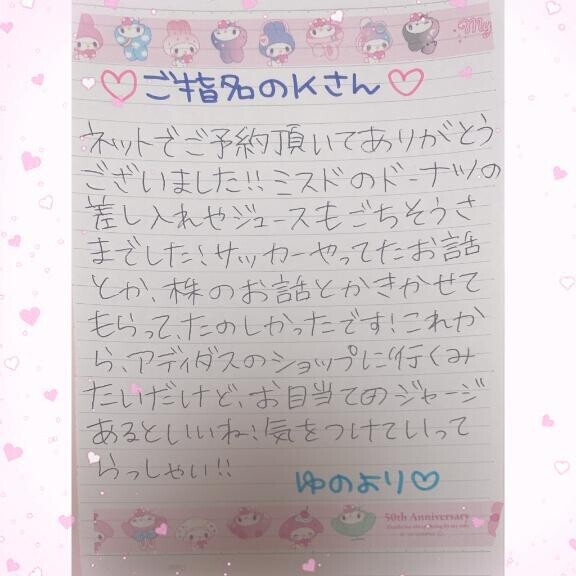 My
ご指名のKさん
ネットでご予約頂いてありがとう
ございました!!ミスドのドーナツの
差し入れやジュースもごちそうさ
までした!サッカーやってたお話
とか、株のお話とかきかせて
もらって、たのしかったです!これか
ら、アディダスのショップに行くみ
たいだけど、お目当てのジャージ
あるといいね!気をつけていって
らっしゃい!!
ゆのより
50th Anniversary